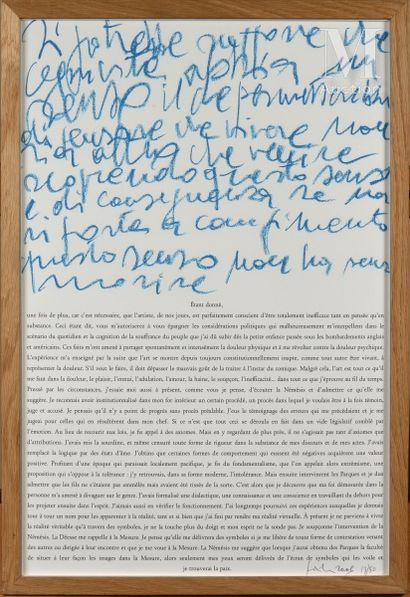 Si potesse supporre che
senso il
di pensare che vivere non
sia altro che venire
scoprendo questo senso
e di conseguenza se non
si porta a compimento
questo senso non ha senso
morire
Étant donné,
une fois de plus, car c'est nécessaire, que l'artiste, de nos jours, est parfaitement conscient d'être totalement inefficace tant en pensée qu'en
substance. Ceci étant dit, vous m'autoriserez à vous épargner les considérations politiques qui malheureusement m'interpellent dans le
scénario du quotidien et la cognition de la souffrance du peuple que j'ai dû subir dès la petite enfance passée sous les bombardements anglais
et américains. Ces faits m'ont amené à partager spontanément et intensément la douleur physique et à me révolter contre la douleur psychique.
L'expérience m'a enseigné par la suite que l'art se montre depuis toujours constitutionnellement inapte, comme tout autre être vivant, à
représenter la douleur. S'il veut le faire, il doit dépasser le mauvais goût de la traiter à l'instar du comique. Malgré cela, l'art est tout ce qu'il
me faut dans la douleur, le plaisir, l'ennui, l'adulation, l'amour, la haine, le soupçon, l'inefficacité... dans tout ce que j'éprouve au fil du temps.
Pressé par les circonstances, j'essaie moi aussi à présent, comme vous je pense, d'écarter la Némésis et d'admettre ce qu'elle me
suggère. Je reconnais avoir institutionnalisé dans mon for intérieur un certain procédé, un procès dans lequel je voulais être à la fois témoin,
juge et accusé. Je pensais qu'il n'y a point de progrès sans procès préalable. J'eus le témoignage des erreurs qui me précédaient et je me
jugeai pour celles qui en résultaient dans mon chef. Si ce n'est que tout ceci se déroula en fait dans un vide législatif comblé par
l'émotion. Au lieu de recourir aux lois, je fis appel à des axiomes. Mais en y regardant de plus près, il ne s'agissait pas tant d'axiomes que
d'attributions. J'avais mis la sourdine, et même censuré toute forme de rigueur dans la substance de mes discours et de mes actes. J'avais
remplacé la logique par des états d'âme. J'obtins que certaines formes de comportement qui eussent été négatives acquièrent une valeur
positive. Profitant d'une époque qui paraissait localement pacifique, je fis du fondamentalisme, que l'on appelait alors extrémisme, une
proposition qui s'oppose à la tolérance : j'y retrouvais, dans sa forme moderne, l'intolérance. Mais ensuite intervinrent les Parques et je dus
admettre que les fils ne s'étaient pas emmêlés mais avaient été tissés de la sorte. C'est alors que je découvris que ma foi démesurée dans la
personne m'amena à divaguer sur le genre. J'avais formulé une dialectique, une connaissance et une conscience en travaillant du dehors pour
les projeter ensuite dans l'esprit. J'aimais aussi en vérifier le fonctionnement. J'ai longtemps poursuivi ces expériences auxquelles je donnais
tour à tour un nom pour les apparenter à la réalité, tant et si bien que j'ai fini par rendre ma réalité virtuelle. À présent je ne parviens à vivre
la réalité véritable qu'à travers des symboles, je ne la touche plus du doigt et mon esprit ne la sonde pas. Je soupçonne l'intervention de la
Némésis. La Déesse me rappelle à la Mesure. Je pense qu'elle me délivrera des symboles si je me libère de toute forme de contestation venant
des autres ou dirigée à leur encontre et que je me voue à la Mesure. La Némésis me suggère que lorsque j'aurai obtenu des Parques la faculté
de situer à leur façon les images dans la Mesure, alors seulement mes yeux seront délivrés de l'écran de symboles qui les voile et
je trouverai la paix.